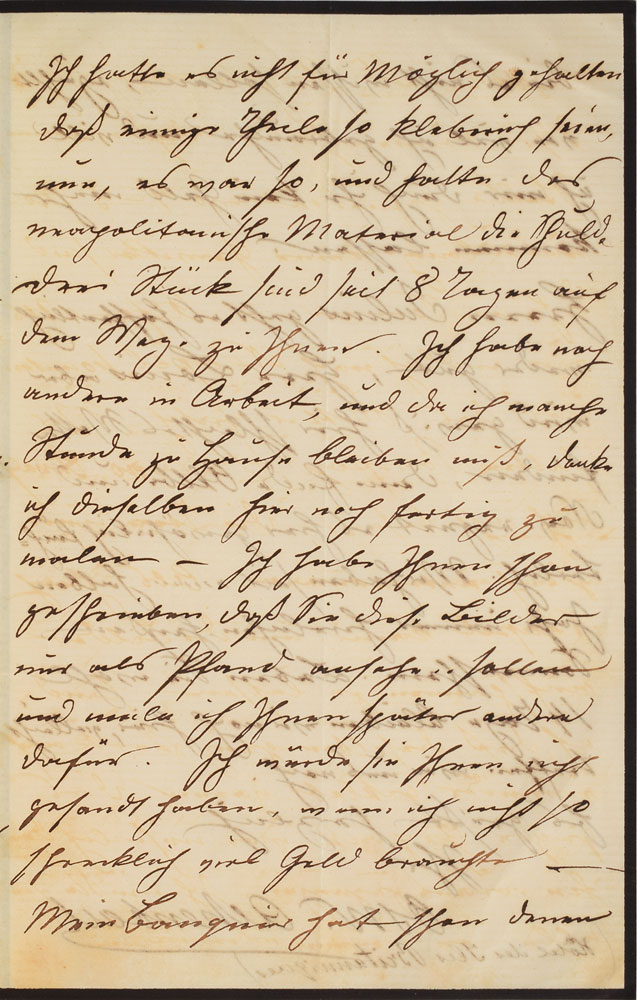 Ich hatte es nicht für Möglich gehalten
daß einige Theile so kleberich seien,
nun, es war so, und hatte das
neapolitanische Material die Schuld.
Drei Stück sind seit 8 Tagen auf
dem Wege zu Ihnen. Ich habe noch
andere in Arbeit, und da ich manche
Stunde zu Hause bleiben muß, denke
ich dieselben hier noch fertig zu
malen — Ich habe Ihnen schon
geschrieben, daß Sie diese Bilder
nur als Pfand ansehen sollen
und male ich Ihnen später andere
dafür. Ich würde sie Ihnen nicht
gesandt haben, wenn ich nicht so
schrecklich viel Geld brauchte —
Mein Banquier hat schon denen